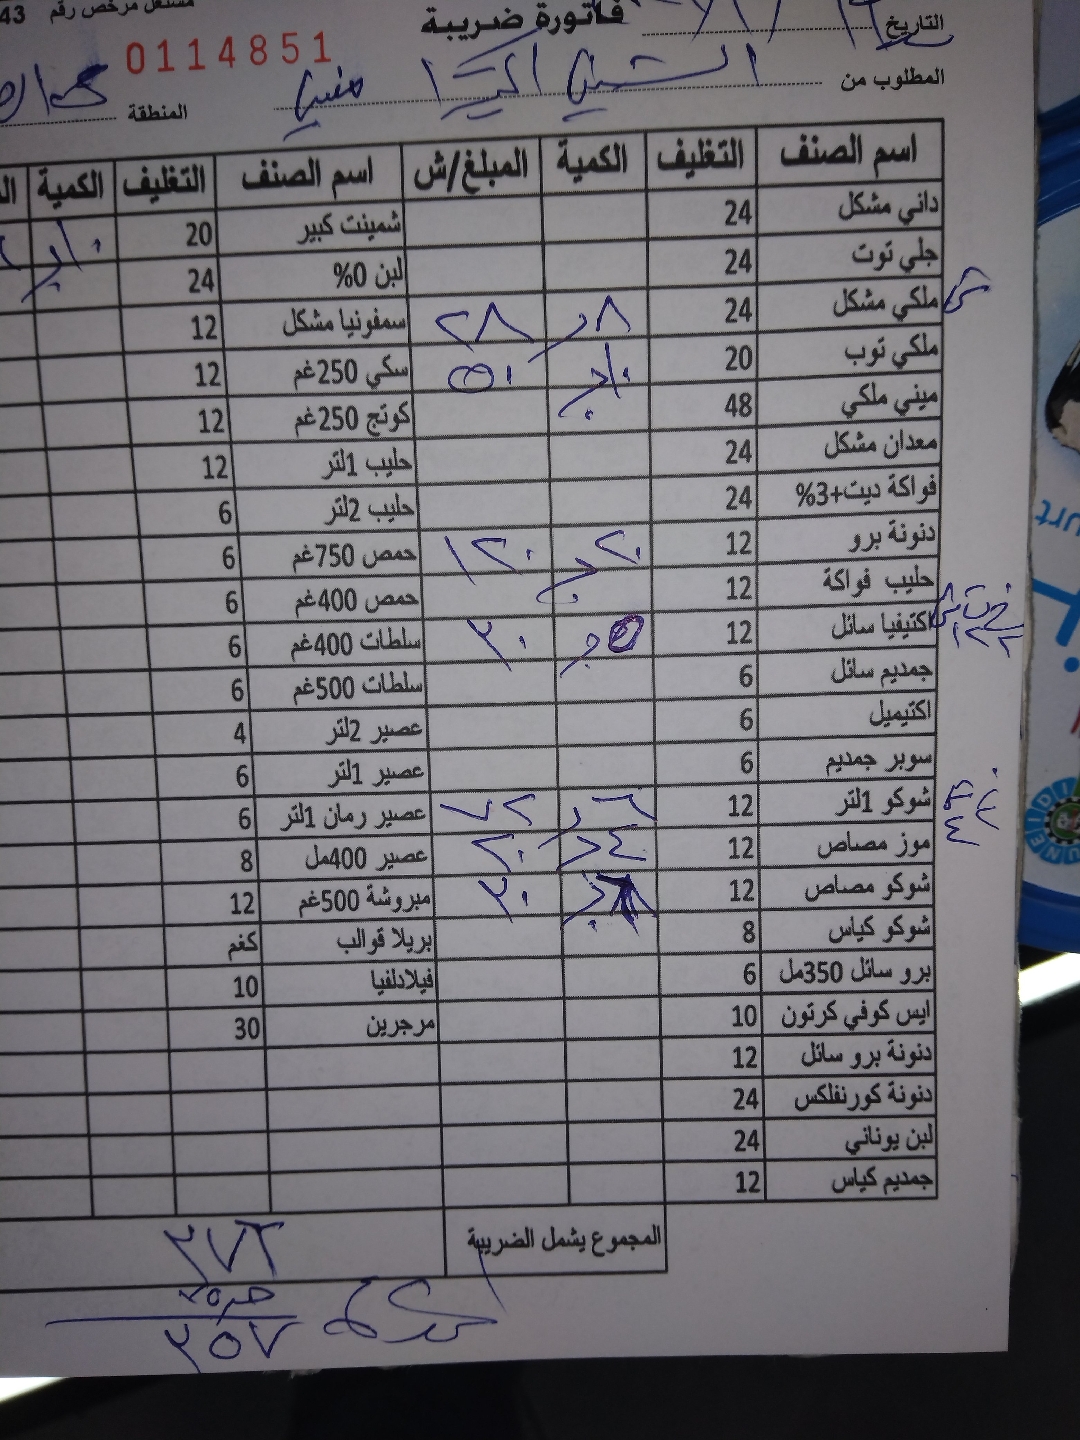 مشتغل مرخص رقم 43
فاتورة ضريبة
0114851
التاريخ
المطلوب من
المنطقة
اسم الصنف التغليف الكمية المبلغ/ش اسم الصنف التغليف الكمية
داني مشكل 24 شمينت كبير 20
جلي توت 24 لبن 0% 24
ملكي مشكل 24 ٨ ٢٨ سمفونيا مشكل 12
ملكي توب 20 سكي 250غم 12
ميني ملكي 48 كوتج 250غم 12
معدان مشكل 24 حليب 1لتر 12
فواكة ديت+3% 24 حليب 2لتر 6
دنونة برو 12 ٢٠ ١٢٠ حمص 750غم 6
حليب فواكة 12 حمص 400غم 6
اكتيفيا سائل 12 ٣٠ سلطات 400غم 6
جمديم سائل 6 سلطات 500غم 6
اكتيميل 6 عصير 2لتر 4
سوبر جمديم 6 عصير 1لتر 6
شوكو 1لتر 12 عصير رمان 1لتر 6
موز مصاص 12 ٤ ٢٠ عصير 400مل 8
شوكو مصاص 12 ٣٠ مبروشة 500غم 12
شوكو كياس 8 بريلا قوالب كغم
برو سائل 350مل 6 فيلادلفيا 10
ايس كوفي كرتون 10 مرجرين 30
دنونة برو سائل 12
دنونة كورنفلكس 24
لبن يوناني 24
جمديم كياس 12
المجموع يشمل الضريبة ٣٧٢
٣٥٧